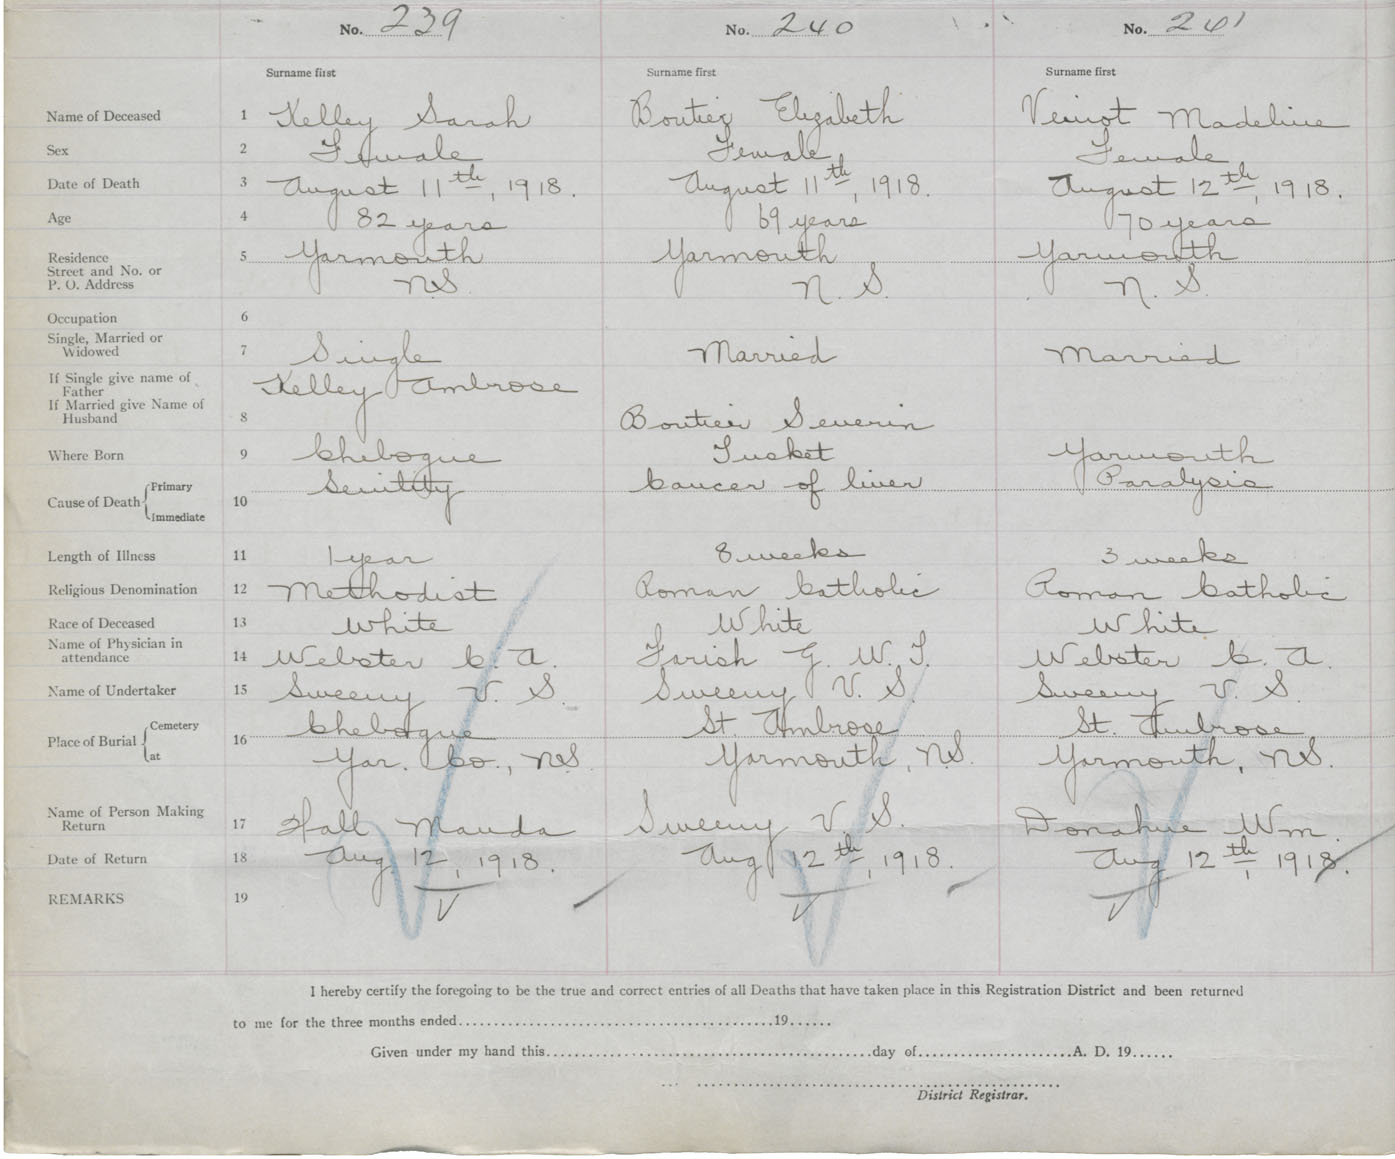 No. 239 No. 240 No. 241
Surname first Surname first Surname first
Name of Deceased 1 Kelley Sarah Boutier Elizabeth Veinot Madeline
Sex 2 Female Female Female
Date of Death 3 August 11th, 1918. August 11th, 1918. August 12th, 1918.
Age 4 82 years 69 years 70 years
Residence 5 Yarmouth Yarmouth Yarmouth
Street and No. or
P. O. Address NS. N. S. N. S.
Occupation 6
Single, Married or
Widowed 7 Single Married Married
If Single give name of
Father Kelley Ambrose
If Married give Name of
Husband 8 Boutier Severin
Where Born 9 Chebogue Tusket Yarmouth
Cause of Death Primary Senility Cancer of liver Paralysis
10
Immediate
Length of Illness 11 1 year 8 weeks 3 weeks
Religious Denomination 12 Methodist Roman Catholic Roman Catholic
Race of Deceased 13 White White White
Name of Physician in
attendance 14 Webster C. A. Farish G. W. T. Webster C. A.
Name of Undertaker 15 Sweeny V. S. Sweeny V. S. Sweeny V. S
Place of Burial Cemetery 16 Chebogue St. Ambrose St. Ambrose
at Yar. Co., NS. Yarmouth, NS. Yarmouth, NS.
Name of Person Making
Return 17 Hall Mauda Sweeny V. S. Donahue Wm.
Date of Return 18 Aug 12, 1918. Aug 12th, 1918. Aug 12th, 1918.
REMARKS 19
I hereby certify the foregoing to be the true and correct entries of all Deaths that have taken place in this Registration District and been returned
to me for the three months ended..........................................19......
Given under my hand this..........................................day of.....................A. D. 19......
District Registrar.